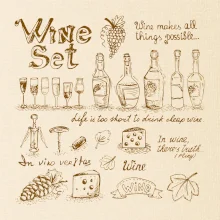 Wine
Set
Wine makes all
things possible...
Life is too short to drink cheap wine
In wine,
there's truth
In vino veritas
Wine
Wine